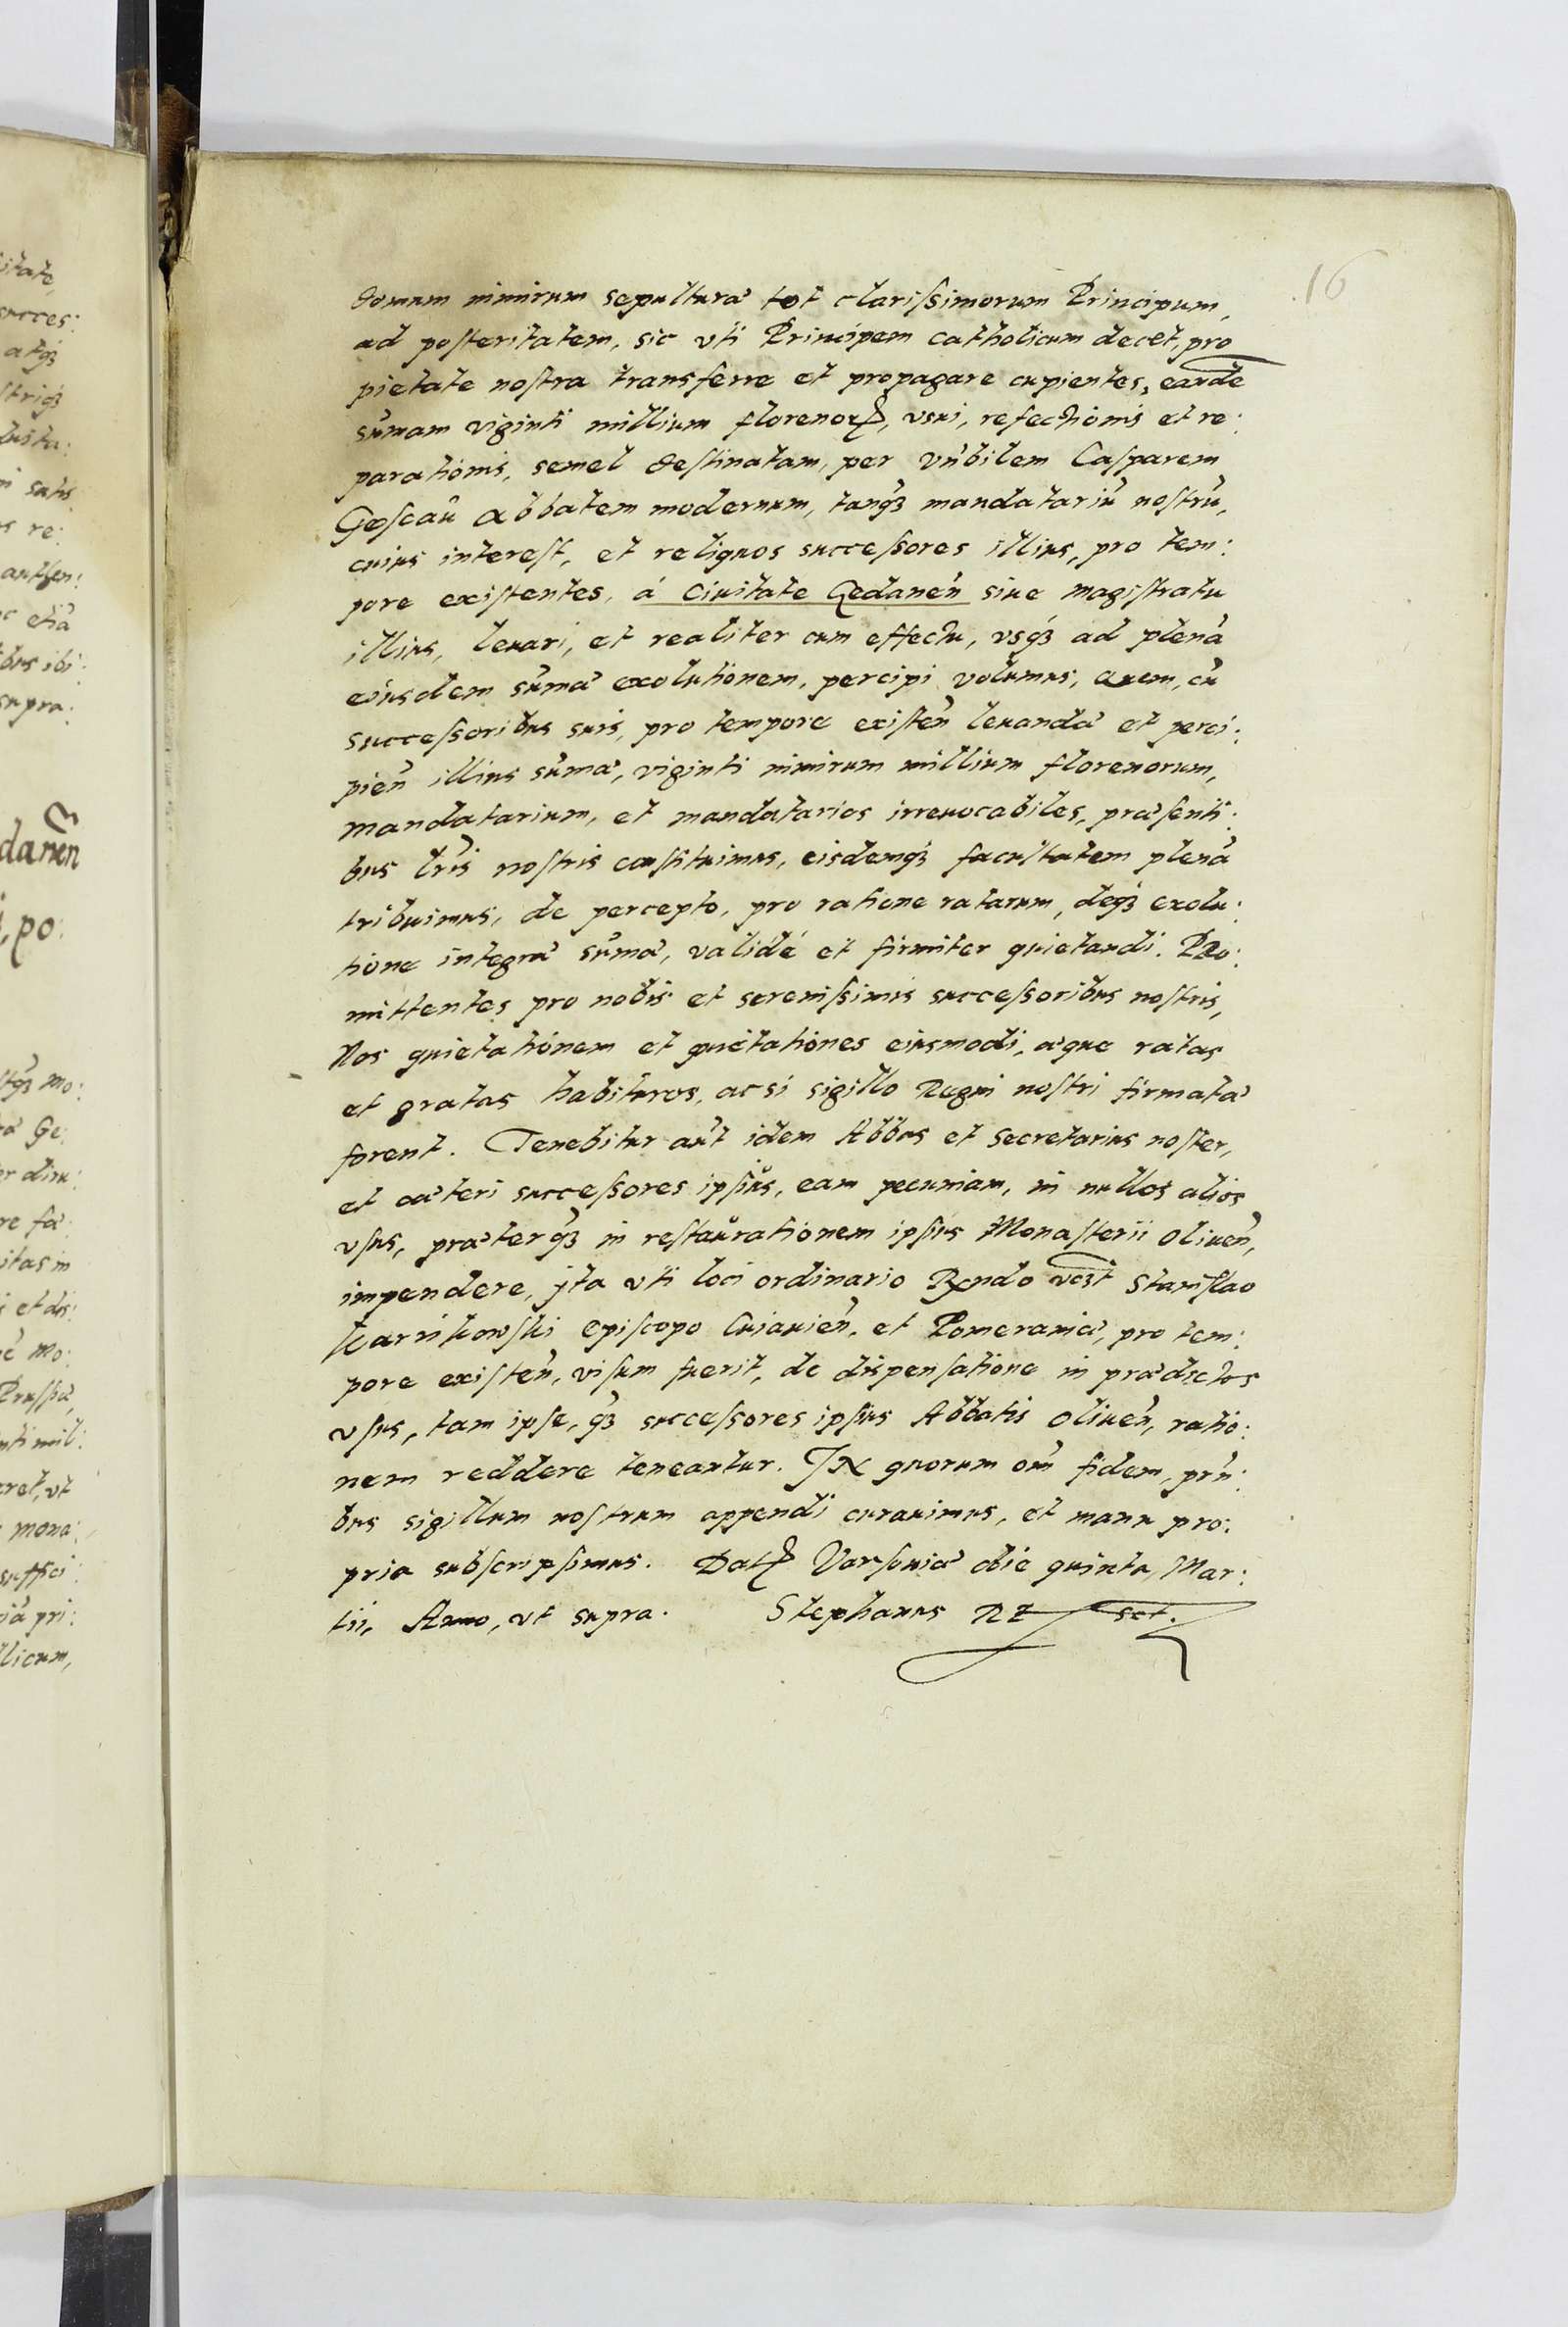 16
domum nimirum sepulturæ tot clarissimorum Principum,
ad posteritatem, sic vti Principem catholicum decet, pro
pietate nostra transferre et propagare cupientes, eandē
sūmam viginti millium florenorꝝ, vsui, refectionis et re:
parationis, semel destinatam, per Vn̄bilem Casparem
Gescaū Abbatem modernum, tanqȝ mandatariū nostrū,
cuius interest, et reliquos successores illius, pro tem:
pore existentes, á Ciuitate Gedanen̄ siue Magistratu
illius, leuari, et realiter cum effectu, vsqȝ ad plenā
eiusdem sūmæ exolutionem, percipi volumus, quem, cū
successoribus suis, pro tempore existen̄ leuandæ et perci:
pien̄ illius sūmæ, viginti nimirum millium florenorum,
mandatarium, et mandatarios irreuocabiles, præsenti:
bus lr̄is nostris constituimus, eisdemqȝ facultatem plenā
tribuimus, de percepto, pro ratione ratarum, deqȝ exolu:
tione integræ sūmæ, validé et firmiter quietandi. PRo:
mittentes pro nobis et serenissimis successoribus nostris,
Nos quietationem et quietationes eiusmodi, æque ratas
et gratas habituros, ac si sigillo Regni nostri firmatæ
forent. Tenebitur aūt idem Abbas et Secretarius noster,
et cæteri successores ipsius, eam pecuniam, in nullos alios
vsus, præterqȝ in restaurationem ipsius Monasterii Oliuen̄,
impendere, jta vti loci ordinario Rx̄ndo vcȝt Stanislao
Karnkowski Episcopo Cuiauien̄. et Pomeraniæ, pro tem:
pore existen̄, visum fuerit, de dispensatione in prædictos
vsus, tam ipse, qȝ successores ipsius Abbatis Oliuen̄, ratio:
nem reddere teneantur. IN quorum om̄ fidem, pr̄n:
bus sigillum nostrum appendi curauimus, et manu pro:
pria subscripsimus. Datꝝ Varsouiæ die quinta, Mar:
tii, Anno, vt supra. Stephanus RE sst.